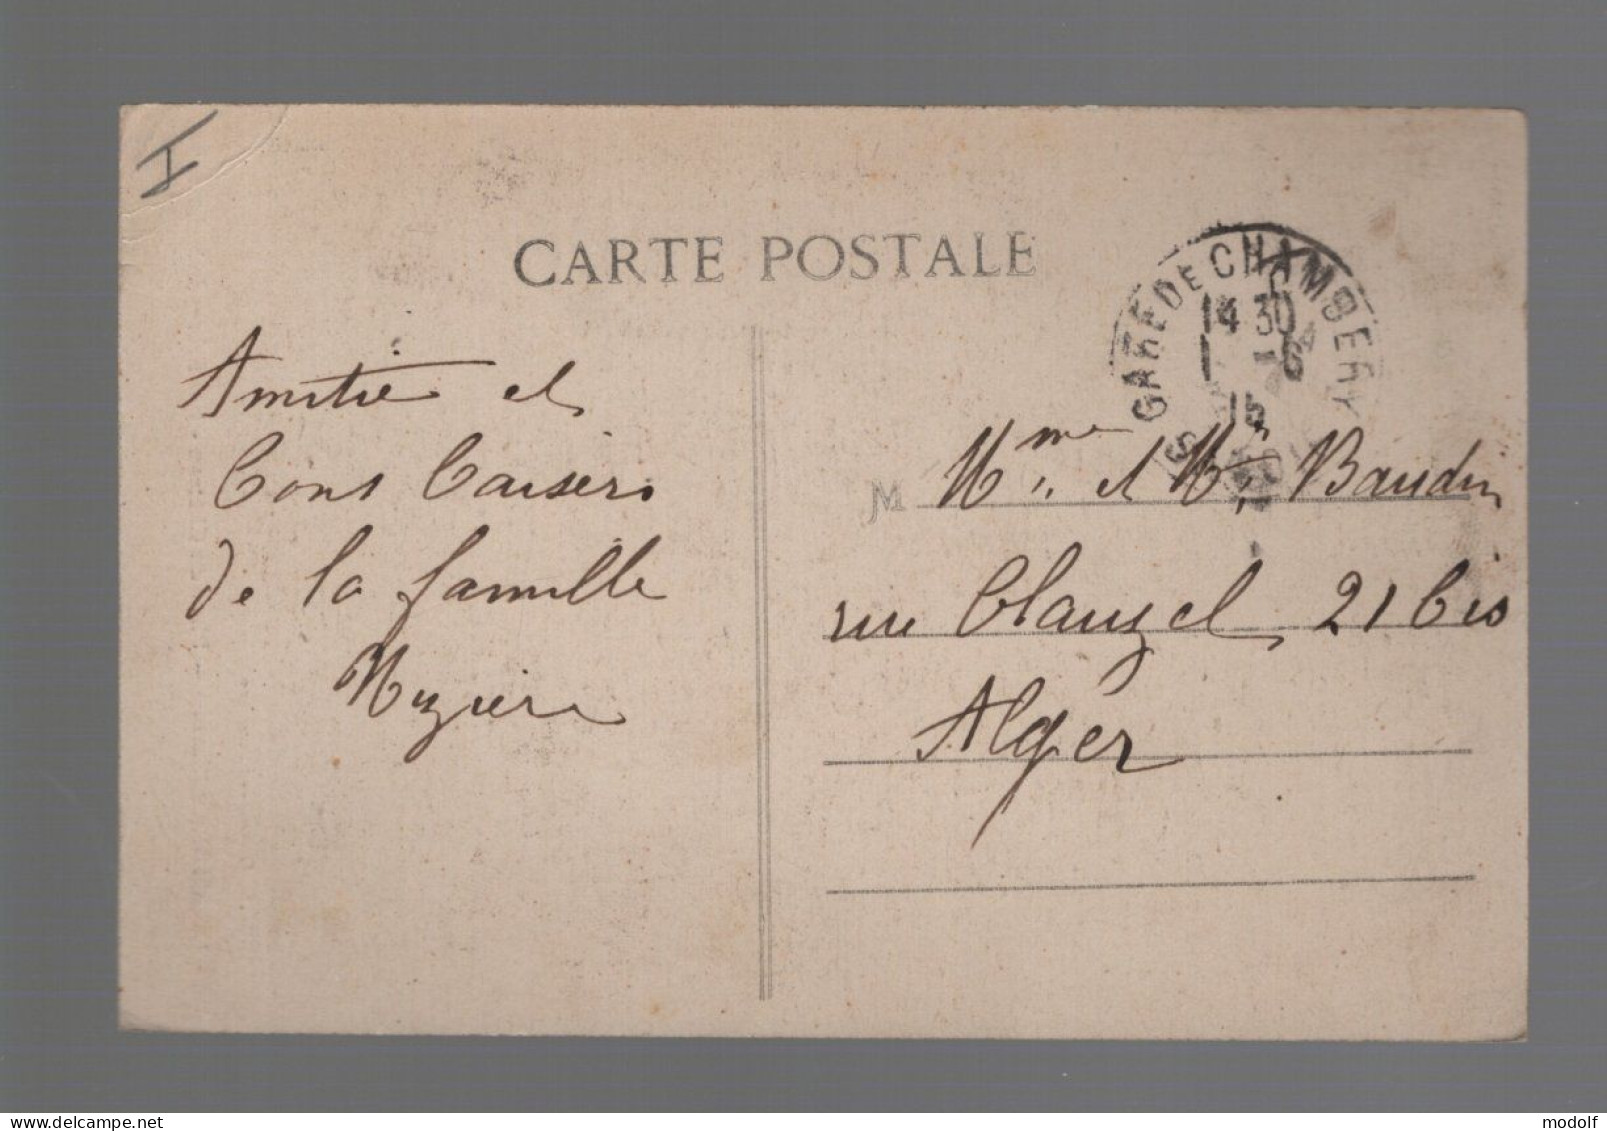 I
CARTE POSTALE
GARE DE CHAMBERY
14 30
1 - 6
15
Amitié et
bons baisers
de la famille
Mme et Mr Baudin
M
rue Clauzel 21 bis
Alger
modolf